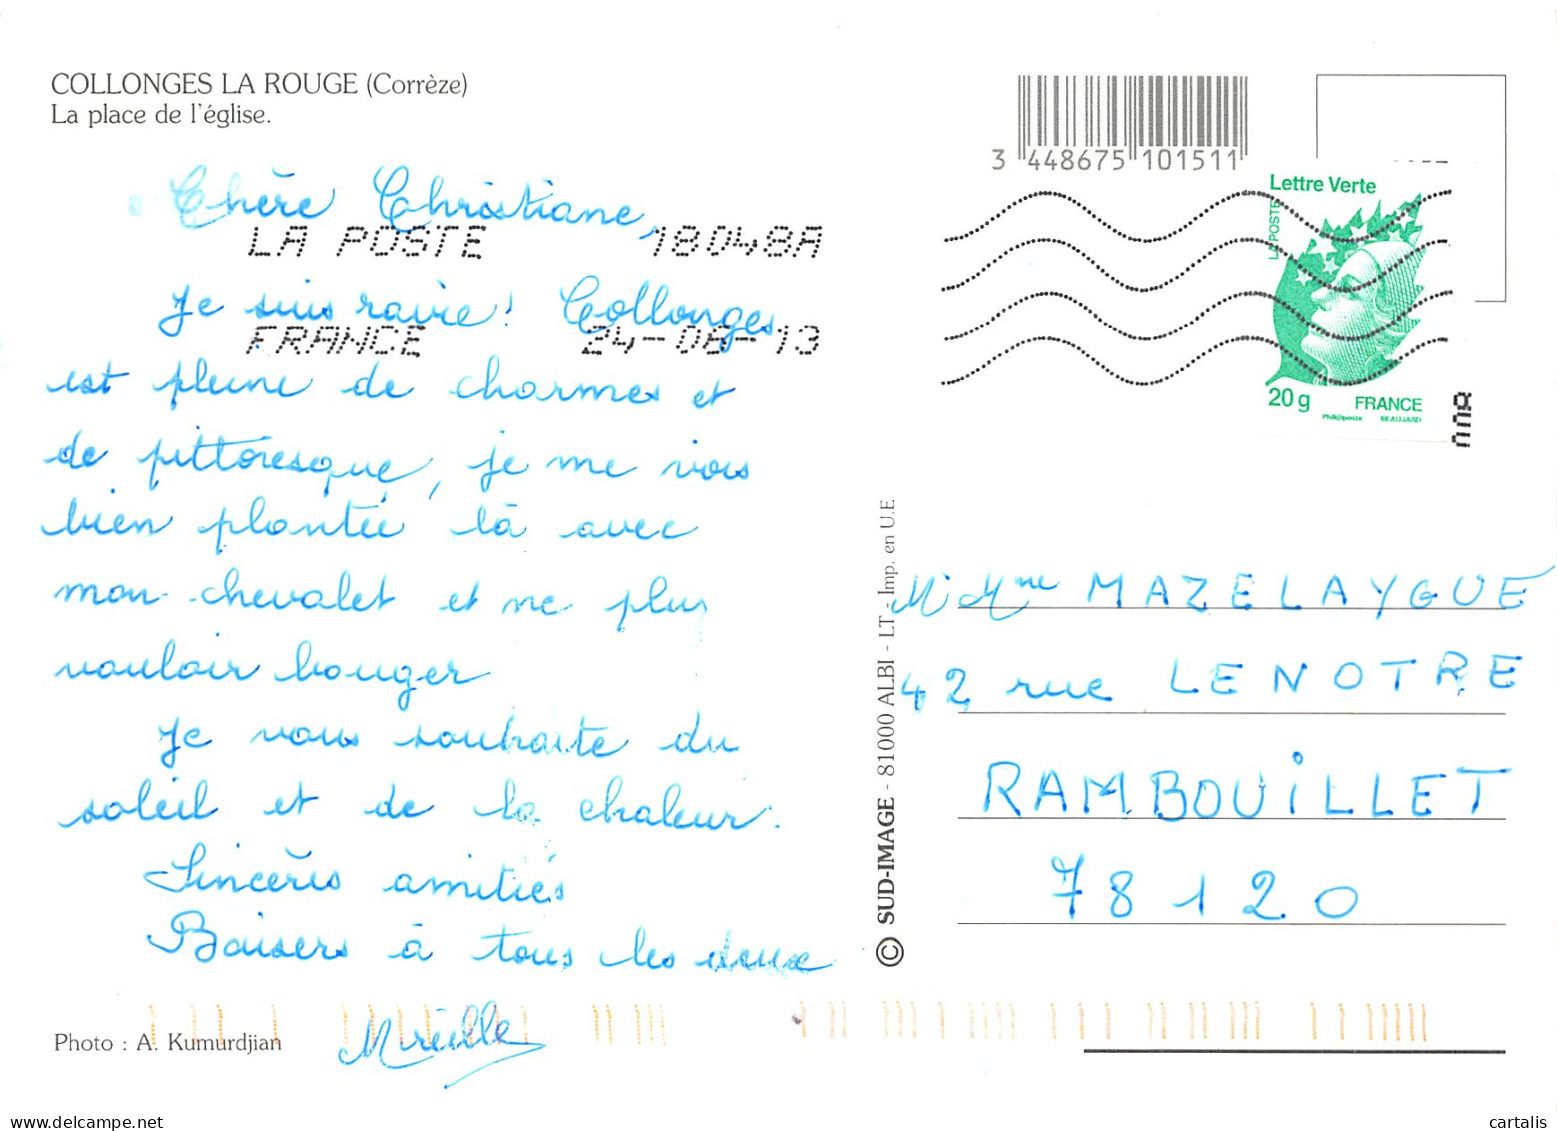 COLLONGES LA ROUGE (Corrèze)
La place de l'église.
Chère Christiane,
Je suis ravie! Collonges
est pleine de charmes et
de pittoresque, je me vois
bien plantée là avec
mon chevalet et ne plus
vouloir bouger
Je vous souhaite du
soleil et de la chaleur.
Sincères amitiés
Baisers à tous les deux
Mireille
Photo : A. Kumurdjian
LA POSTE 18048A
FRANCE 24-06-13
3 448675 101511
Lettre Verte
LA POSTE
20 g FRANCE
Phil@poste BEAUJARD
© SUD-IMAGE - 81000 ALBI - LT - Imp. en U.E
M. Mme MAZELAYGUE
42 rue LENOTRE
RAMBOUILLET
78120
www.delcampe.net
cartalis